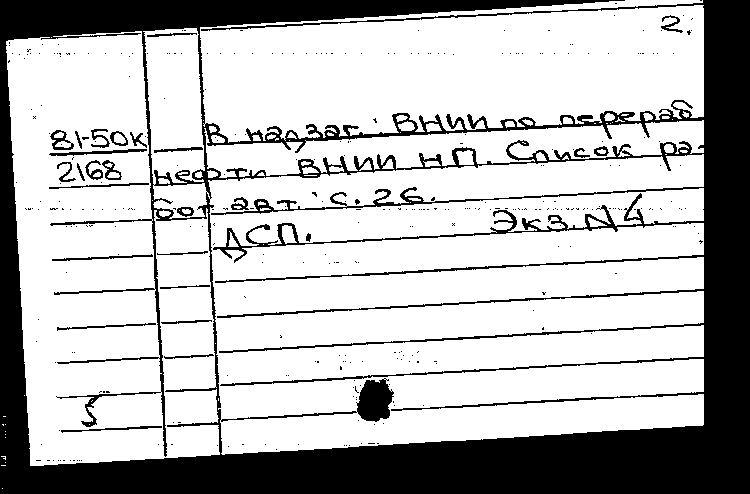 2.
81-50к В надзаг.: ВНИИ по перераб
2168 нефти ВНИИ НП. Список ра-
бот авт.: с. 26.
ДСП. Экз. N 4.
5